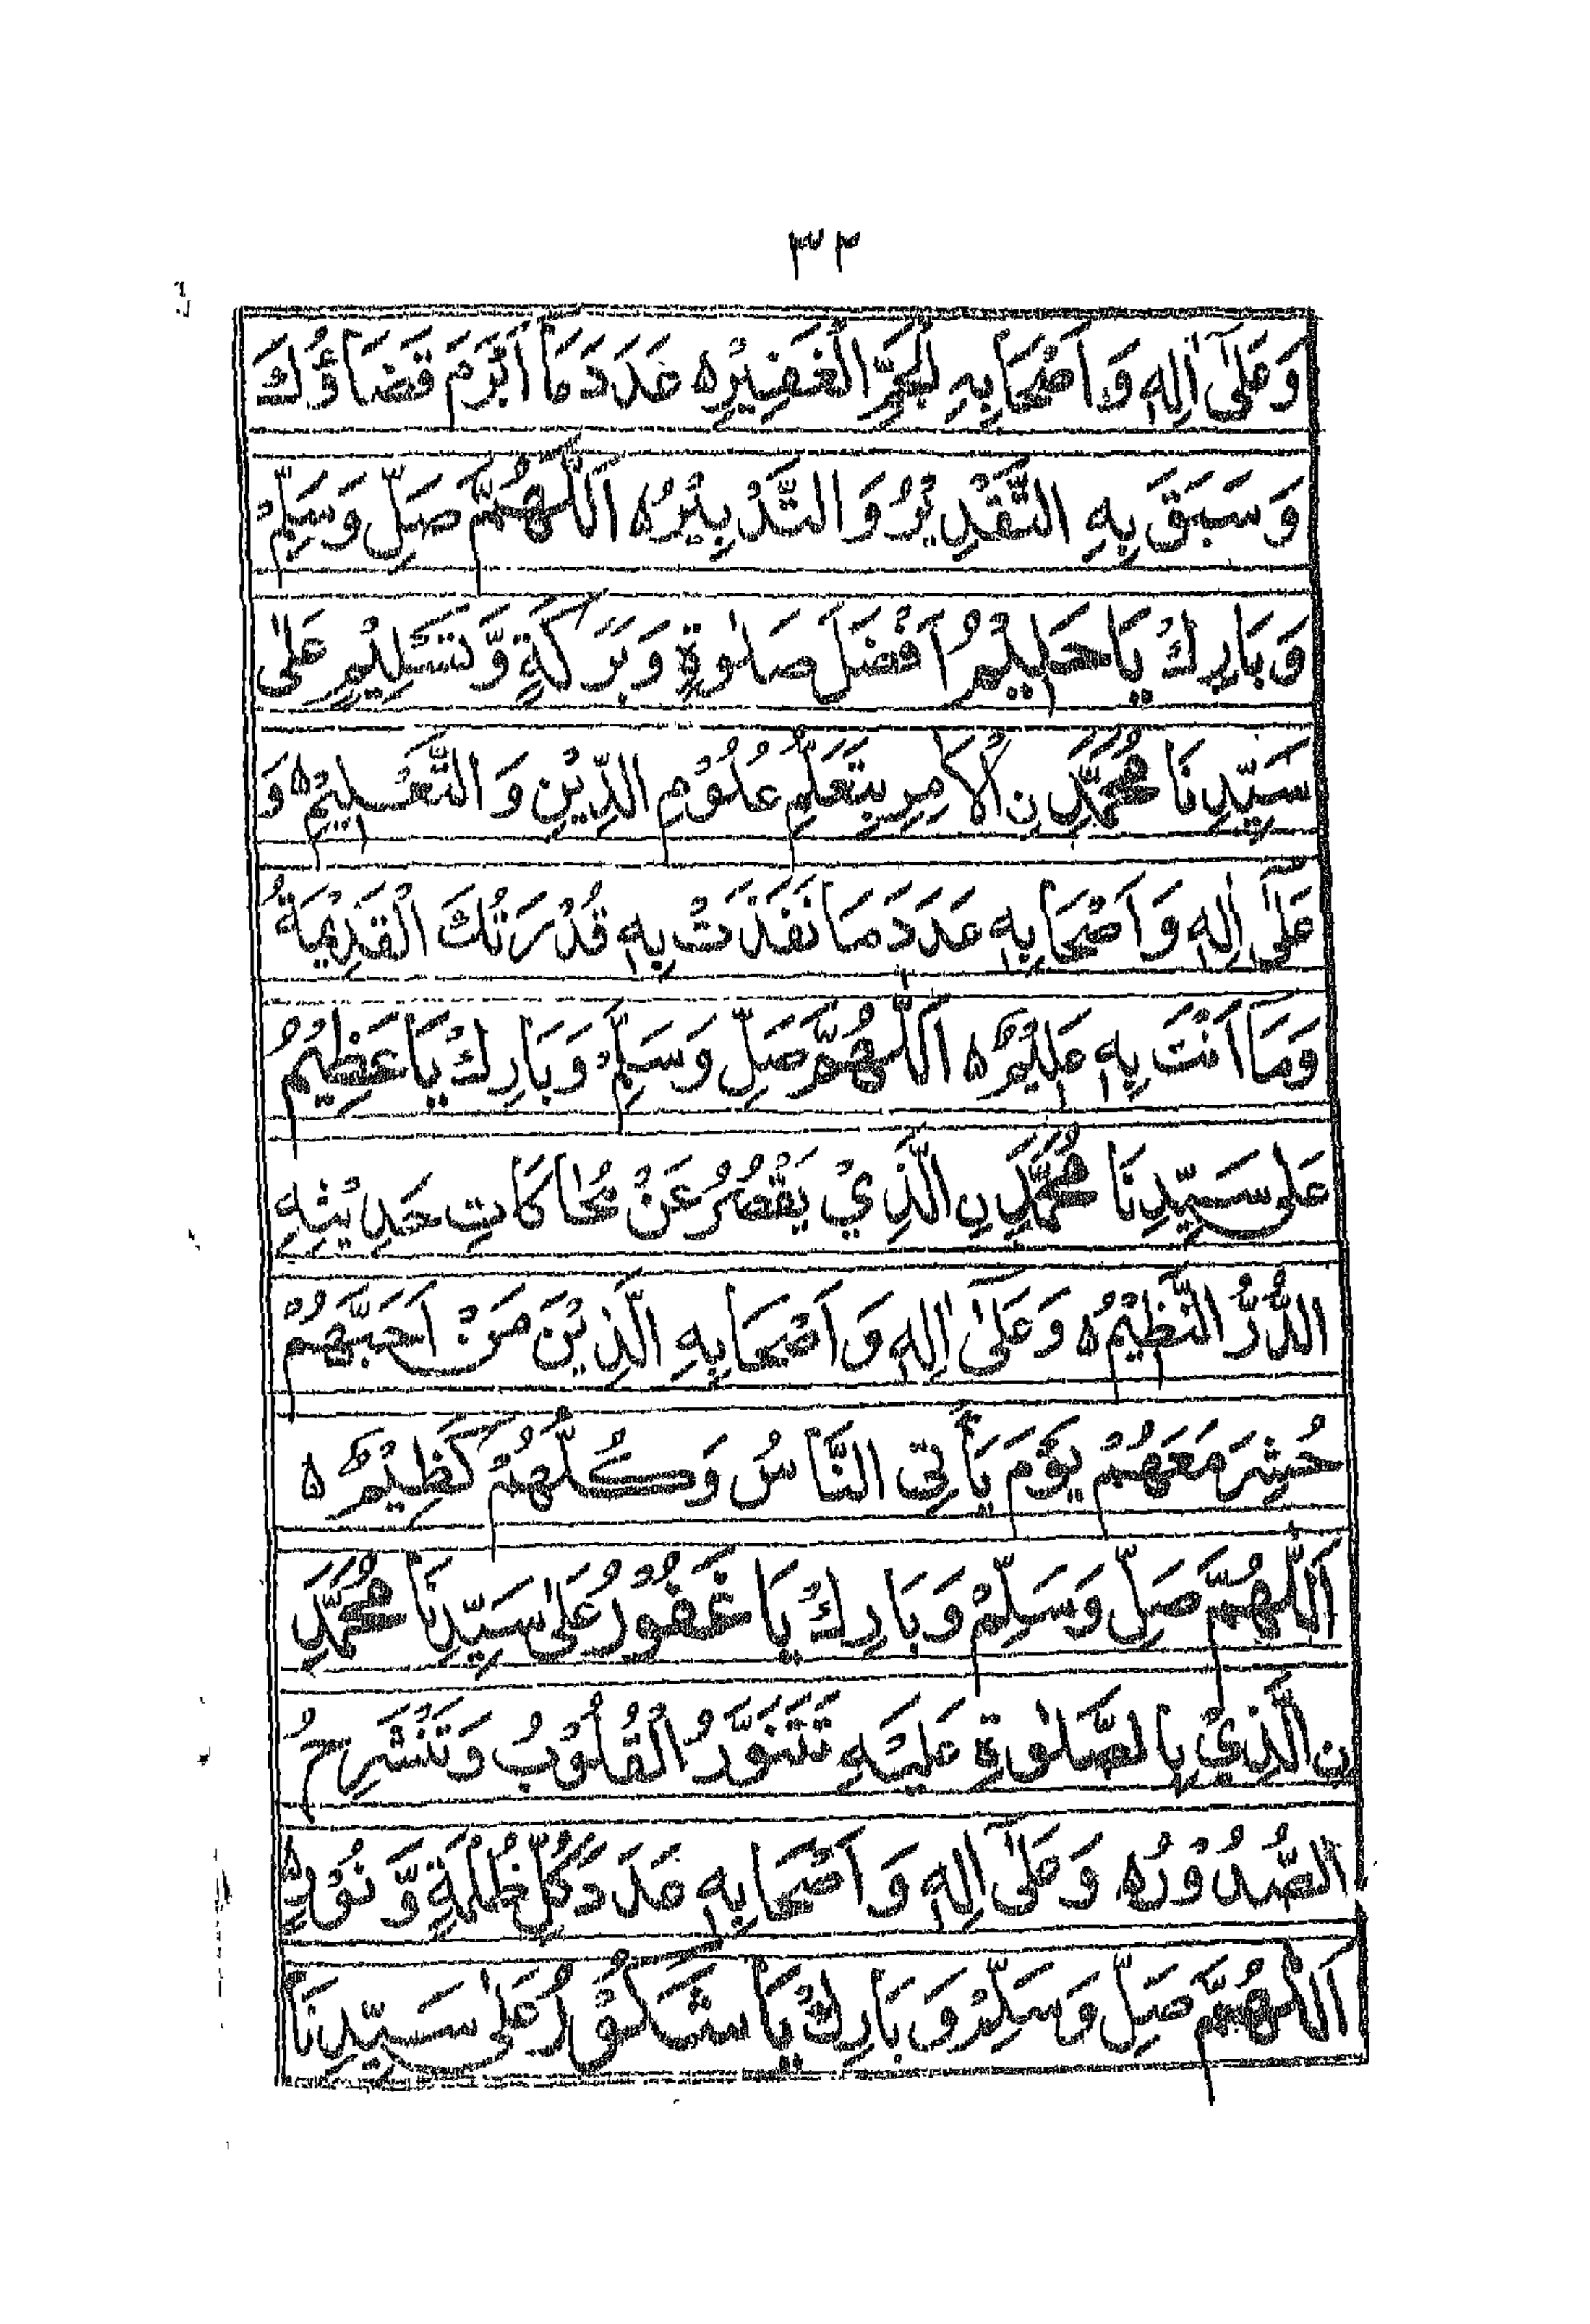 ٣٣
وَعَلٰٓى اٰلِهٖ وَاَصْحَابِهِ الْجَمِّ الْغَفِيْرِ ه عَدَدَ مَا اَبْرَمَ قَضَاؤُكَ
وَسَبَقَ بِهِ التَّقْدِيْرُ وَالتَّدْبِيْرُ ه اَللّٰهُمَّ صَلِّ وَسَلِّمْ
وَبَارِكْ يَا حَلِيْمُ اَفْضَلَ صَلٰوةٍ وَبَرَكَةٍ وَّتَسْلِيْمٍ عَلٰى
سَيِّدِنَا مُحَمَّدِ نِ الْاٰمِرِ بِتَعَلُّمِ عُلُوْمِ الدِّيْنِ وَالتَّعْلِيْمِ ه وَ
عَلٰٓى اٰلِهٖ وَاَصْحَابِهٖ عَدَدَ مَا نَفَذَتْ بِهٖ قُدْرَتُكَ الْقَدِيْمَةُ
وَمَا اَنْتَ بِهٖ عَلِيْمٌ ه اَللّٰهُمَّ صَلِّ وَسَلِّمْ وَبَارِكْ يَا عَظِيْمُ
عَلٰى سَيِّدِنَا مُحَمَّدِ نِ الَّذِيْ يَقْصُرُ عَنْ مُحَاكَاتِ حَدِيْثِهِ
الدُّرُّ النَّظِيْمُ ه وَعَلٰٓى اٰلِهٖ وَاَصْحَابِهِ الَّذِيْنَ مَنْ اَحَبَّهُمْ
حُشِرَ مَعَهُمْ يَوْمَ يَأْتِى النَّاسُ وَكُلُّهُمْ كَظِيْمٌ ه
اَللّٰهُمَّ صَلِّ وَسَلِّمْ وَبَارِكْ يَا غَفُوْرُ عَلٰى سَيِّدِنَا مُحَمَّدِ
نِ الَّذِيْ بِالصَّلٰوةِ عَلَيْهِ تَتَنَوَّرُ الْقُلُوْبُ وَتَنْشَرِحُ
الصُّدُوْرُ ه وَعَلٰٓى اٰلِهٖ وَاَصْحَابِهٖ عَدَدَ كُلِّ ظُلْمَةٍ وَّنُوْرٍ ه
اَللّٰهُمَّ صَلِّ وَسَلِّمْ وَبَارِكْ يَا شَكُوْرُ عَلٰى سَيِّدِنَا